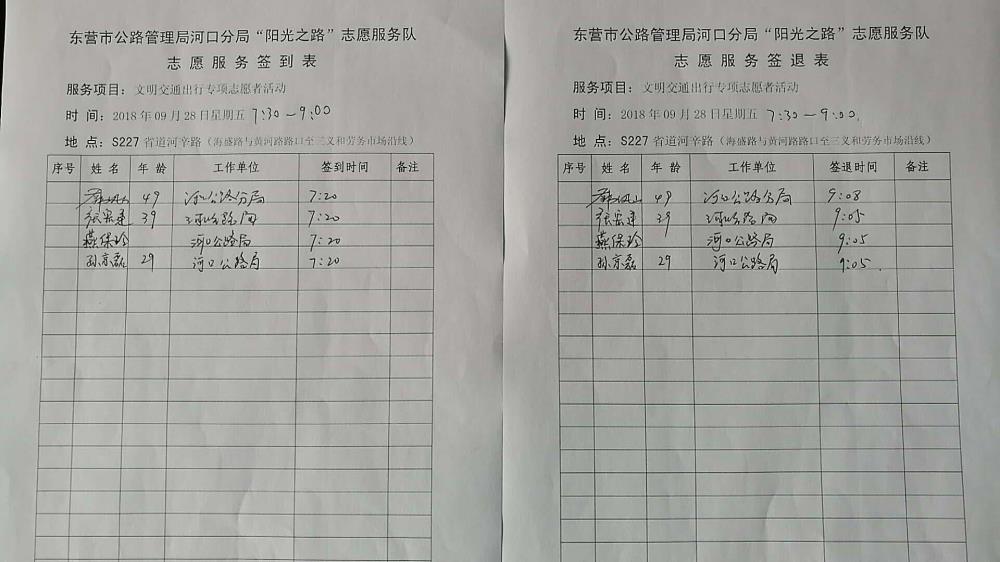 东营市公路管理局河口分局“阳光之路”志愿服务队
志愿服务签到表
服务项目：文明交通出行专项志愿者活动
时间：2018年09月28日星期五 7:30—9:00
地点：S227省道河辛路（海盛路与黄河路路口至三义和劳务市场沿线）
序号 姓名 年龄 工作单位 签到时间 备注
49 河口公路分局 7:20
张宏建 39 河口公路局 7:20
燕保珍 河口公路局 7:20
孙京磊 29 河口公路局 7:20
东营市公路管理局河口分局“阳光之路”志愿服务队
志愿服务签退表
服务项目：文明交通出行专项志愿者活动
时间：2018年09月28日星期五 7:30—9:00.
地点：S227省道河辛路（海盛路与黄河路路口至三义和劳务市场沿线）
序号 姓名 年龄 工作单位 签退时间 备注
49 河口公路分局 9:08
张宏建 39 河口公路局 9:05
燕保珍 河口公路局 9:05
孙京磊 29 河口公路局 9:05.